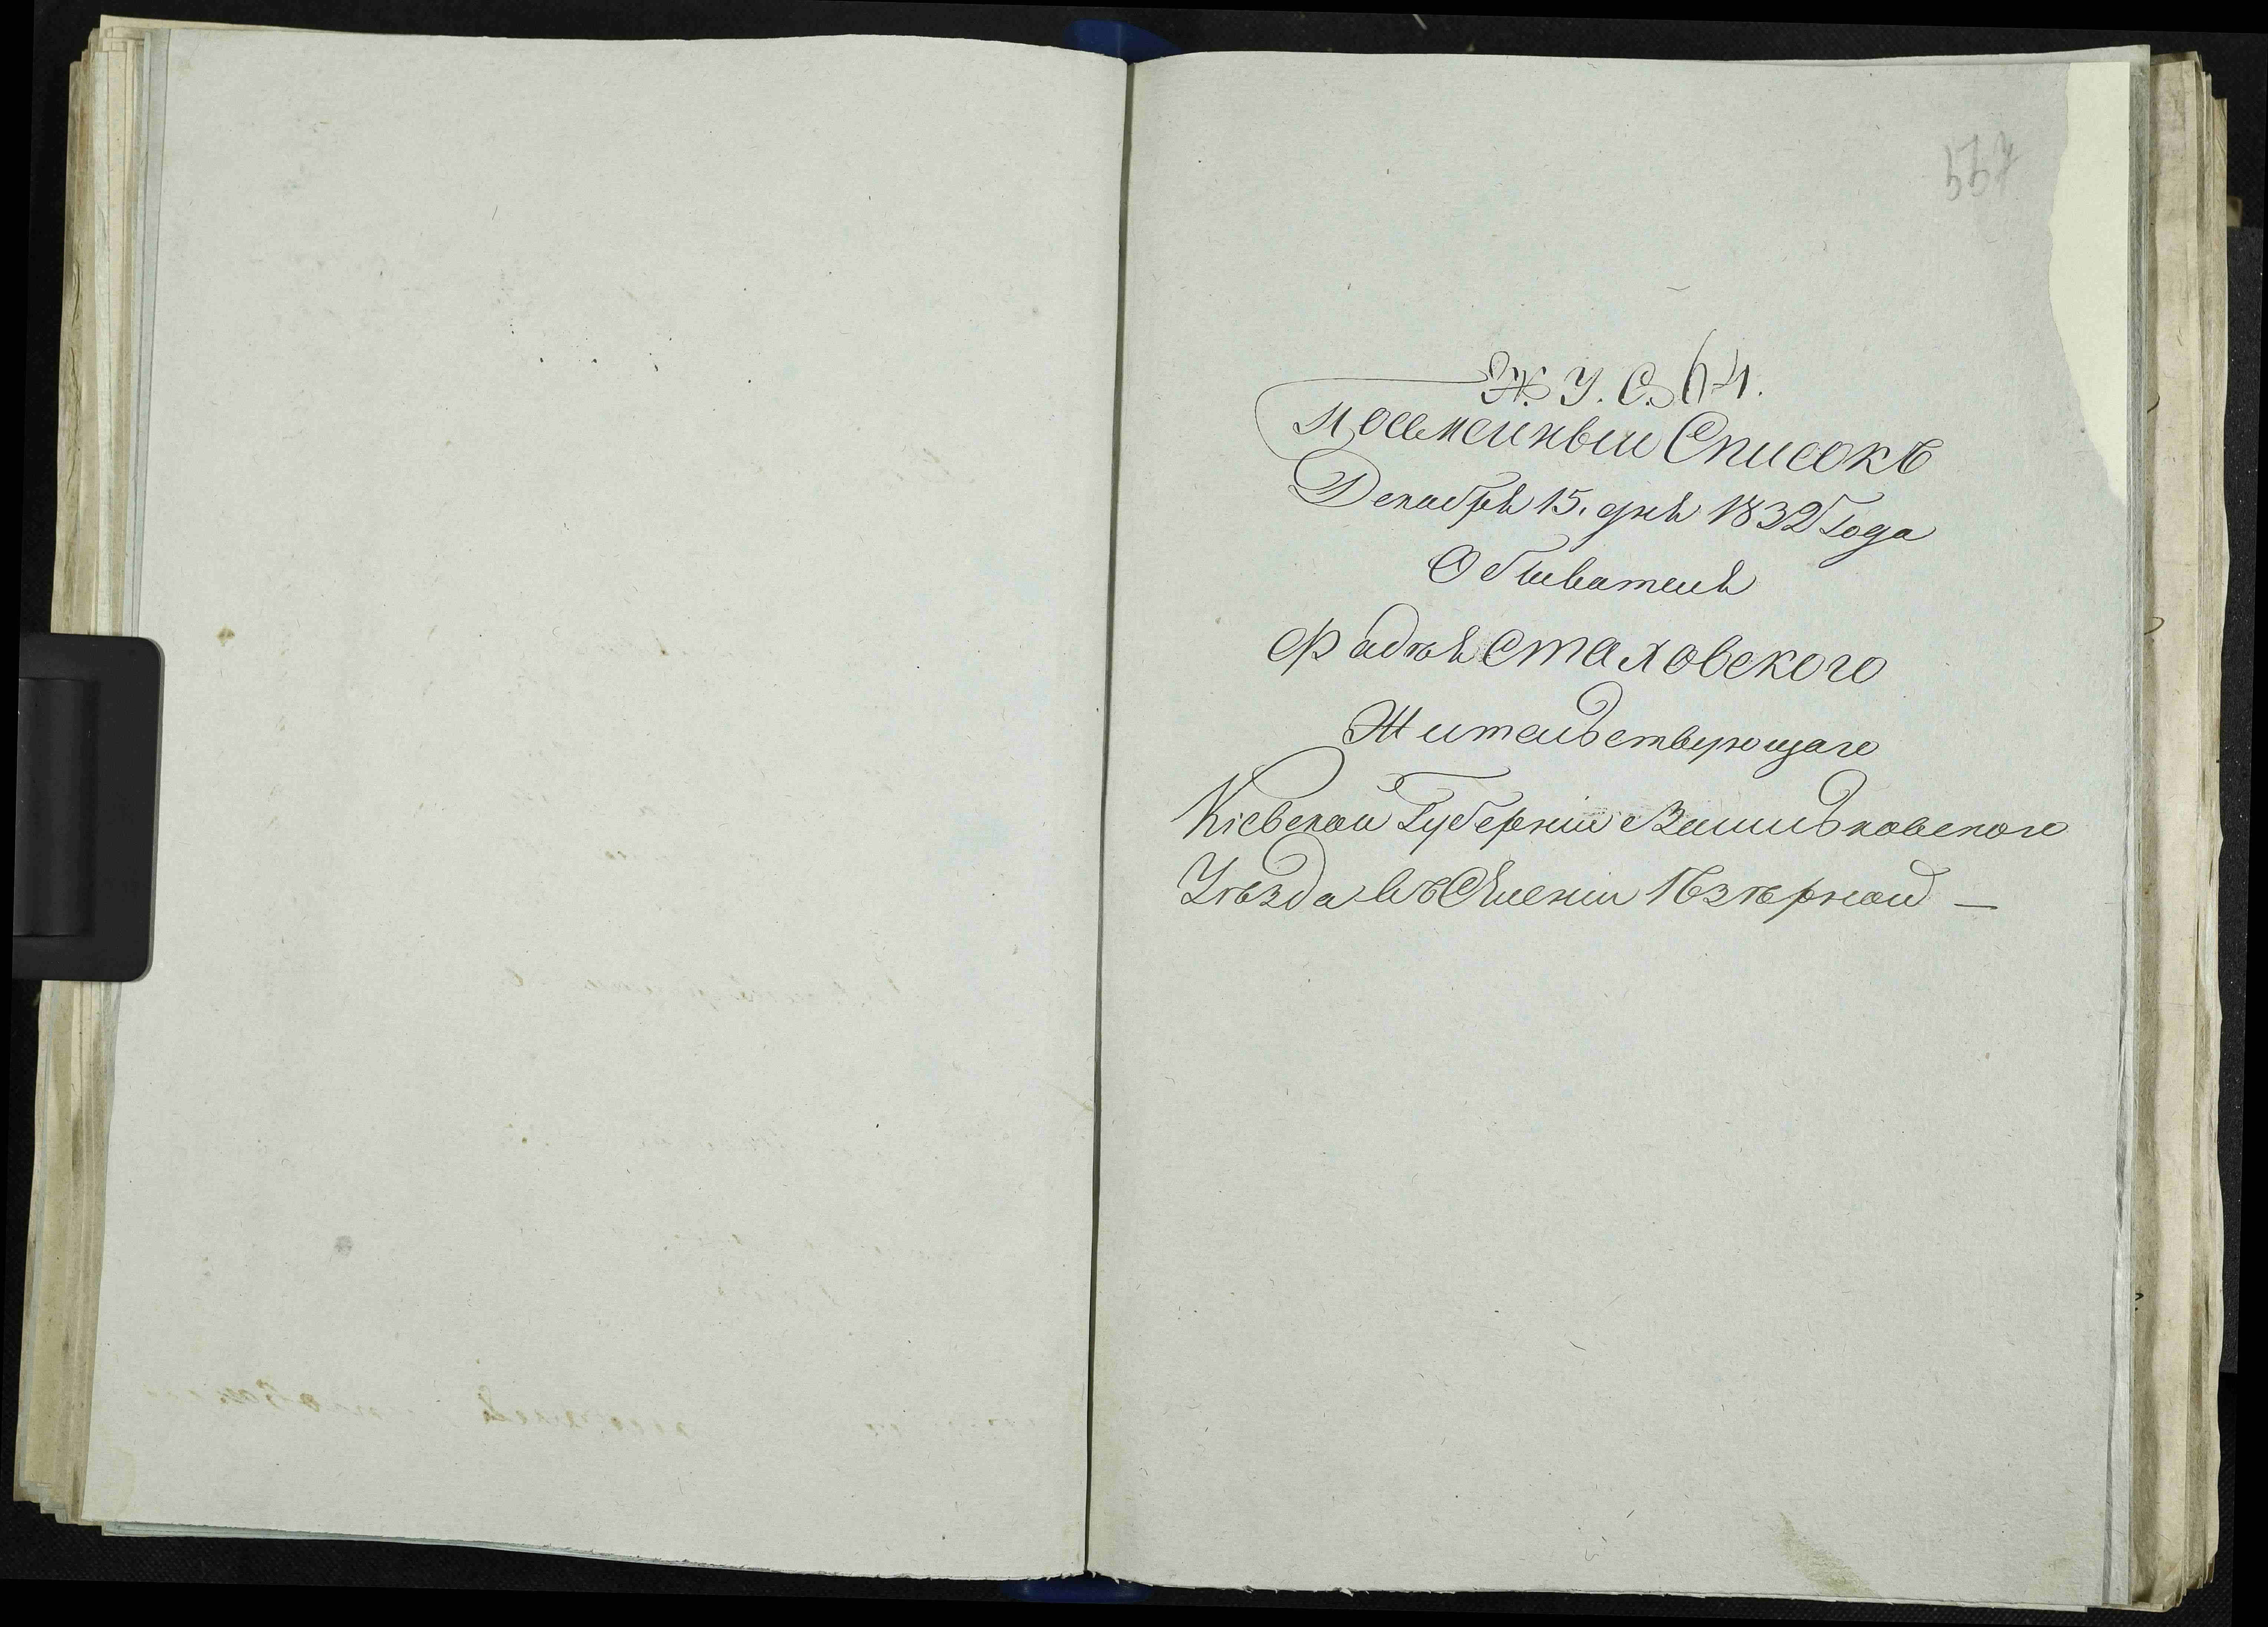 567
Ж. У. С. 64.
Посемейный Списокъ
Декабря 15. дня 1832 Года
Обывателя
Фадѣя Стаховского
Жительствующаго
Кіевской Губерніи Васильковского
Уѣзда въ Имѣніи Езѣрной —